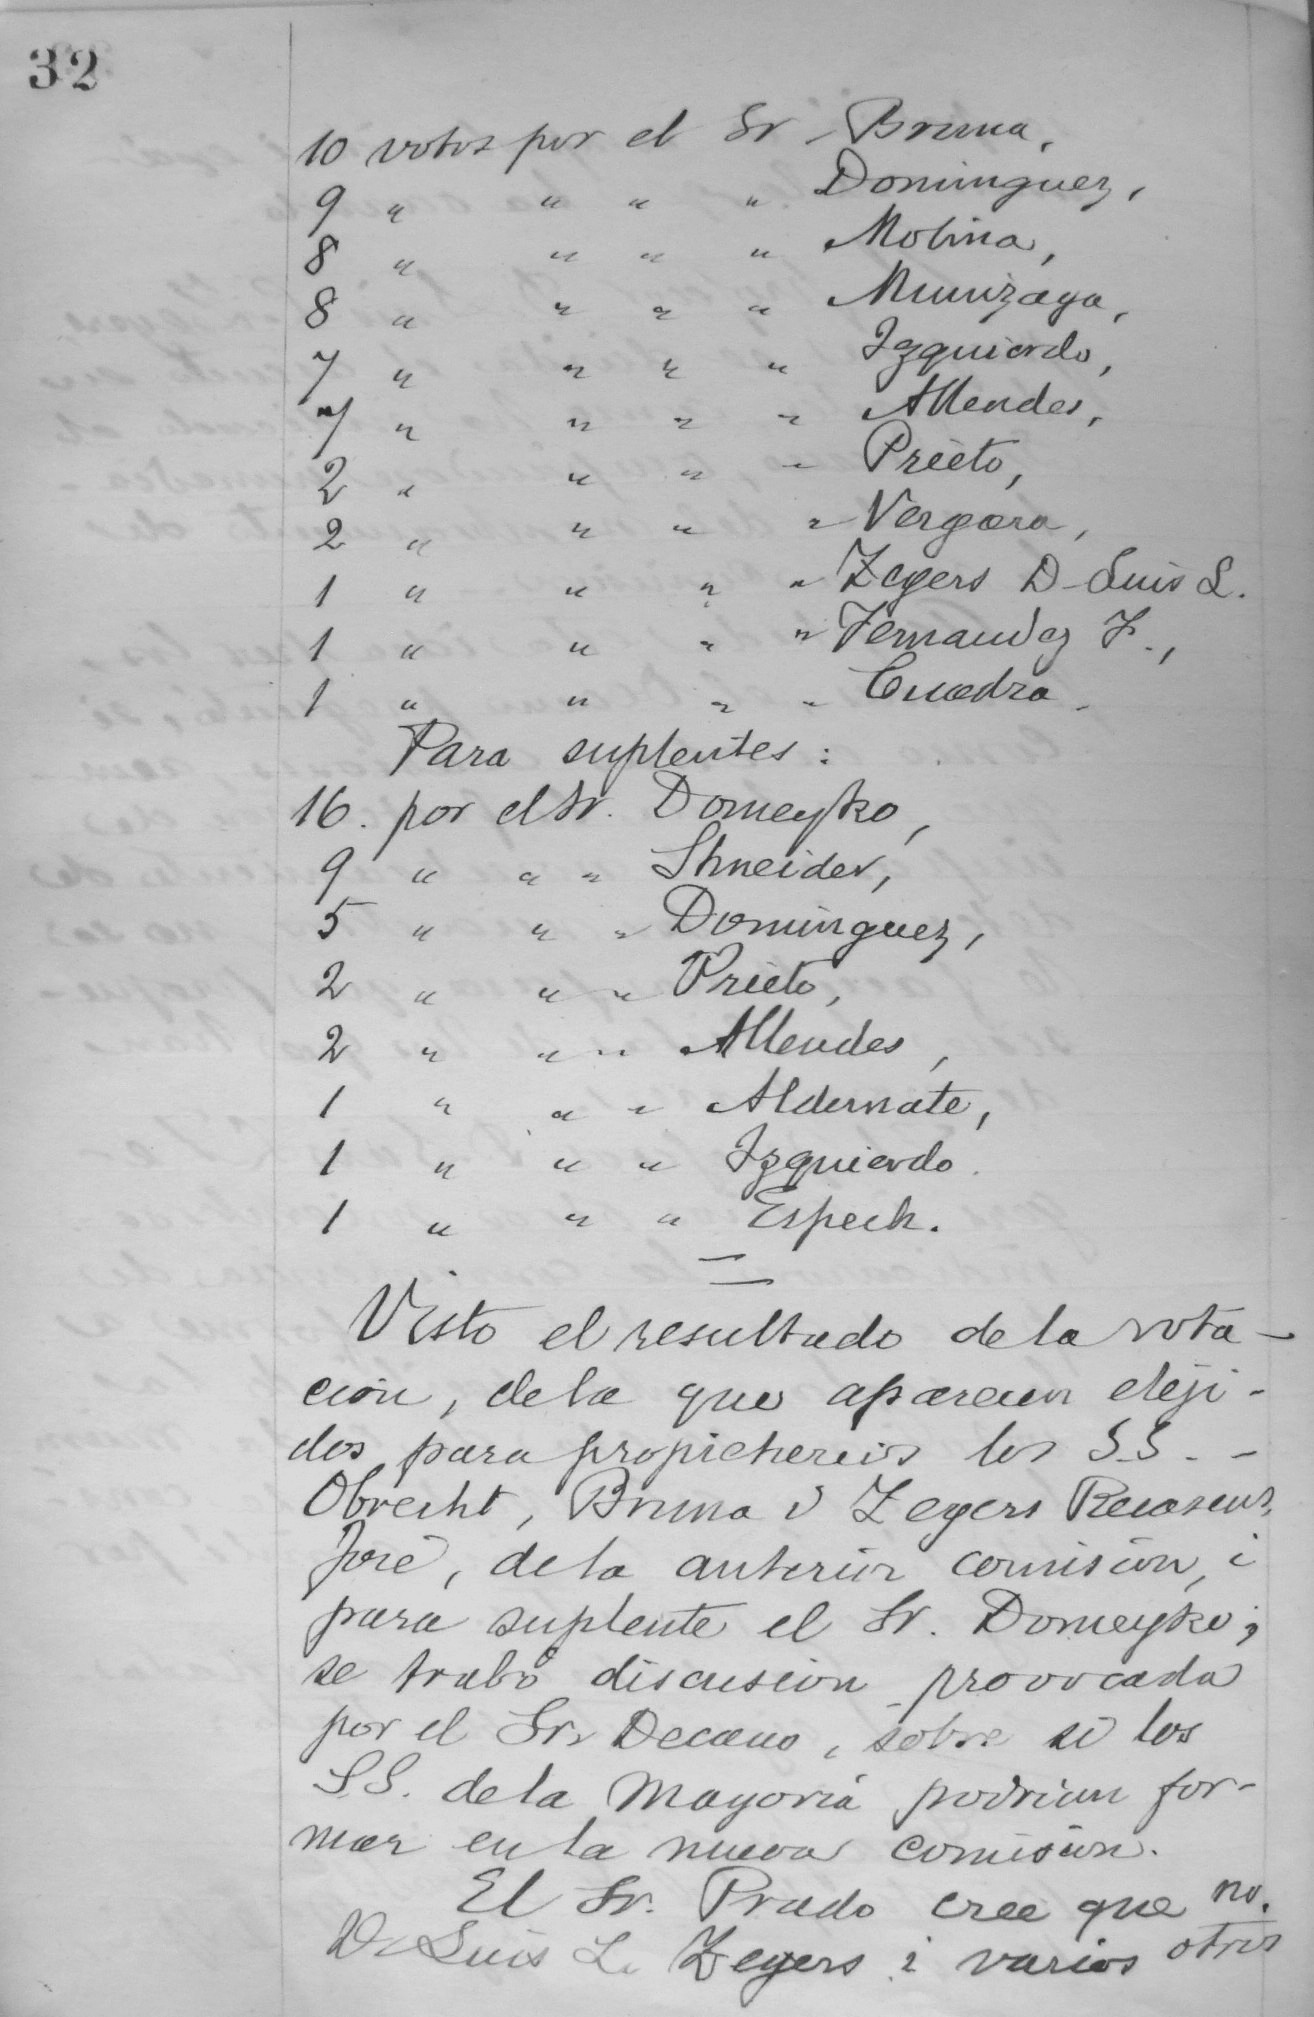 32
10 votos por el Sr Bruna,
9 " " " " Dominguez,
8 " " " " Molina,
8 " " " " Munizaga,
7 " " " " Izquierdo,
7 " " " " Allendes,
2 " " " " Prieto,
2 " " " " Vergara,
1 " " " " Zegers D. Luis L.
1 " " " " Fernandez F.,
1 " " " " Cuadra.
Para suplentes:
16. por el Sr. Domeyko,
9 " " " Shneider,
5 " " " Dominguez,
2 " " " Prieto,
2 " " " Allendes,
1 " " " Aldunate,
1 " " " Izquierdo.
1 " " " Espech.
Visto el resultado de la vota-
cion, de la que aparecen eleji-
dos para propietarios los S.S. -
Obrecht, Bruna i Zegers Recasens
José, de la anterior comision, i
para suplente el Sr. Domeyko;
se trabó discusion provocada
por el Sr. Decano, sobre si los
S.S. de la Mayoría podrian for-
mar en la nueva comision.
El Sr. Prado cree que no.
D. Luis L. Zegers i varios otros